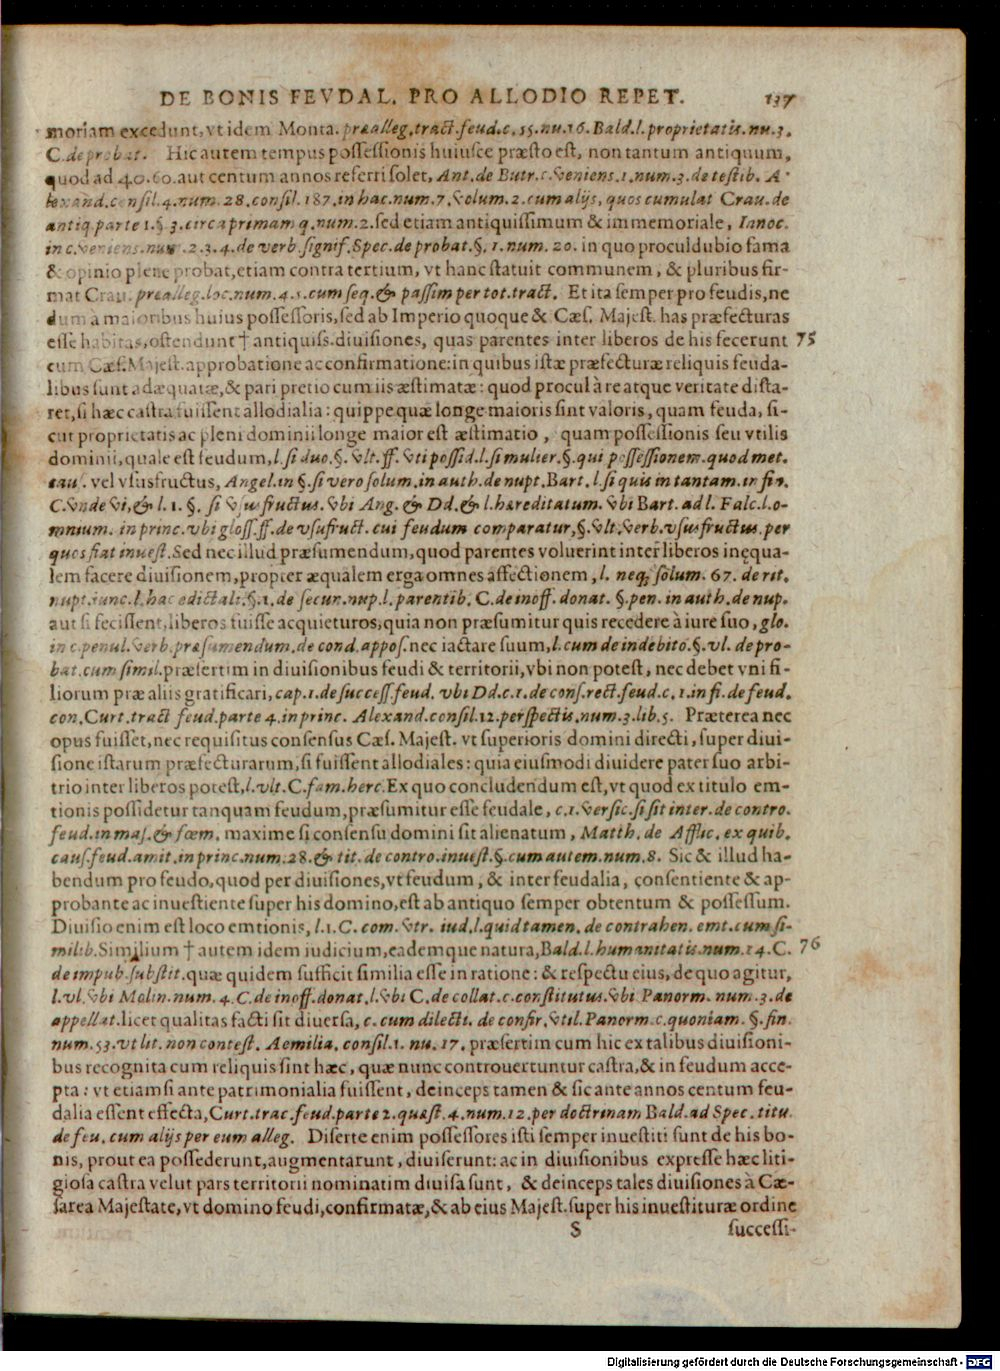 DE BONIS FEVDAL. PRO ALLODIO REPET. 137
moriam excedunt, vt idem Monta. præalleg. tract. feud. c. 55. nu. 16. Bald. l. proprietatis. nu. 3.
C. de probat. Hic autem tempus possessionis huiusce præsto est, non tantum antiquum,
quod ad 40. 60. aut centum annos referri solet, Ant. de Butr. c. veniens. 1. num. 3. de testib. A-
lexand. consil. 4. num. 28. consil. 187. in hac. num. 7. volum. 2. cum alijs, quos cumulat Crau. de
antiq. parte 1. §. 3. circa primam q. num. 2. sed etiam antiquissimum & immemoriale, Innoc.
in c. veniens. num. 2. 3. 4. de verb. signif. Spec. de probat. §. 1. num. 20. in quo proculdubio fama
& opinio plene probat, etiam contra tertium, vt hanc statuit communem, & pluribus fir-
mat Crau. præalleg. loc. num. 4. 5. cum seq. & passim per tot. tract. Et ita semper pro feudis, ne
dum à maioribus huius possessoris, sed ab Imperio quoque & Cæs. Majest. has præfecturas
esse habitas, ostendunt † antiquiss. diuisiones, quas parentes inter liberos de his fecerunt 75
cum Cæs. Majest. approbatione ac confirmatione: in quibus istæ præfecturæ reliquis feuda-
libus sunt adæquatæ, & pari pretio cum iis æstimatæ: quod procul à re atque veritate dista-
ret, si hæc castra fuissent allodialia: quippe quæ longe maioris sint valoris, quam feuda, si-
cut proprietatis ac pleni dominii longe maior est æstimatio, quam possessionis seu vtilis
dominii, quale est feudum, l. si duo. §. vlt. ff. vti possid. l. si mulier. §. qui possessionem. quod met.
caus. vel vsusfructus, Angel. in §. si vero solum. in auth. de nupt. Bart. l. si quis in tantam. in fin.
C. vnde vi, & l. 1. §. si vsusfructus. vbi Ang. & Dd. & l. hæreditatum. vbi Bart. ad l. Falc. l. o-
mnium. in princ. vbi gloss. ff. de vsufruct. cui feudum comparatur, §. vlt. verb. vsusfructus. per
quos fiat inuest. Sed nec illud præsumendum, quod parentes voluerint inter liberos inęqua-
lem facere diuisionem, propter æqualem erga omnes affectionem, l. neq; solum. 67. de rit.
nupt. iunc. l. hac edictali. §. 1. de secun. nup. l. parentib. C. de inoff. donat. §. pen. in auth. de nup.
aut si fecissent, liberos fuisse acquieturos, quia non præsumitur quis recedere à iure suo, glo.
in c. penul. verb. præsumendum, de cond. appos. nec iactare suum, l. cum de indebito. §. vl. de pro-
bat. cum simil. præsertim in diuisionibus feudi & territorii, vbi non potest, nec debet vni fi-
liorum præ aliis gratificari, cap. 1. de success. feud. vbi Dd. c. 1. de cons. rect. feud. c. 1. in fi. de feud.
con. Curt. tract feud. parte 4. in princ. Alexand. consil. 12. perspectis. num. 3. lib. 5. Præterea nec
opus fuisset, nec requisitus consensus Cæs. Majest. vt superioris domini directi, super diui-
sione istarum præfecturarum, si fuissent allodiales: quia eiusmodi diuidere pater suo arbi-
trio inter liberos potest, l. vlt. C. fam. herc. Ex quo concludendum est, vt quod ex titulo em-
tionis possidetur tanquam feudum, præsumitur esse feudale, c. 1. versic. si sit inter. de contro.
feud. in mas. & fœm. maxime si consensu domini sit alienatum, Matth. de Afflic. ex quib.
caus. feud. amit. in princ. num. 28. & tit. de contro. inuest. §. cum autem. num. 8. Sic & illud ha-
bendum pro feudo, quod per diuisiones, vt feudum, & inter feudalia, consentiente & ap-
probante ac inuestiente super his domino, est ab antiquo semper obtentum & possessum.
Diuisio enim est loco emtionis, l. 1. C. com. vtr. iud. l. quid tamen. de contrahen. emt. cum si-
milib. Similium † autem idem iudicium, eademque natura, Bald. l. humanitatis. num. 14. C. 76
de impub. substit. quæ quidem sufficit similia esse in ratione: & respectu eius, de quo agitur,
l. vl. vbi Molin. num. 4. C. de inoff. donat. l. vbi C. de collat. c. constitutus. vbi Panorm. num. 3. de
appellat. licet qualitas facti sit diuersa, c. cum dilecti. de confir. vtil. Panorm. c. quoniam. §. fin.
num. 53. vt lit. non contest. Aemilia. consil. 1. nu. 17. præsertim cum hic ex talibus diuisioni-
bus recognita cum reliquis sint hæc, quæ nunc controuertuntur castra, & in feudum acce-
pta: vt etiamsi ante patrimonialia fuissent, deinceps tamen & sic ante annos centum feu-
dalia essent effecta, Curt. trac. feud. parte 2. quæst. 4. num. 12. per doctrinam Bald. ad Spec. titu.
de feu. cum alijs per eum alleg. Diserte enim possessores isti semper inuestiti sunt de his bo-
nis, prout ea possederunt, augmentarunt, diuiserunt: ac in diuisionibus expresse hæc liti-
giosa castra velut pars territorii nominatim diuisa sunt, & deinceps tales diuisiones à Cæ-
sarea Majestate, vt domino feudi, confirmatæ, & ab eius Majest. super his inuestituræ ordine
S successi-
Digitalisierung gefördert durch die Deutsche Forschungsgemeinschaft - DFG